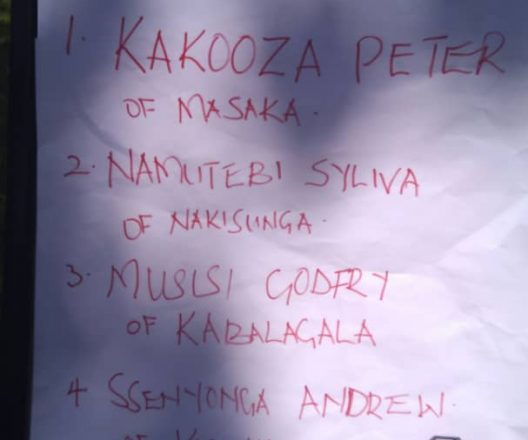 1. KAKOOZA PETER
OF MASAKA.
2. NAMUTEBI SYLIVA
OF NAKISUNGA.
3. MUSISI GODFRY
OF KABALAGALA
4 SSENYONGA ANDREW.
OF